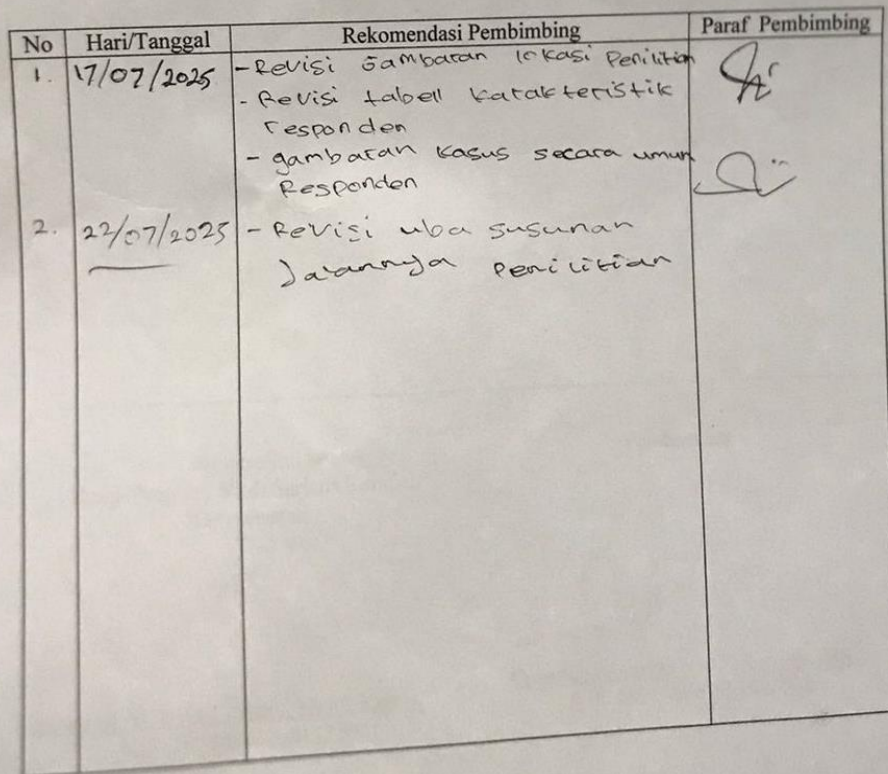 No Hari/Tanggal Rekomendasi Pembimbing Paraf Pembimbing
1. 17/07/2025 - Revisi Gambaran lokasi Penilitian
- Revisi tabell karakteristik
responden
- gambaran kasus secara umum
Responden
2. 22/07/2025 - Revisi uba susunan
Jalannya Penilitian